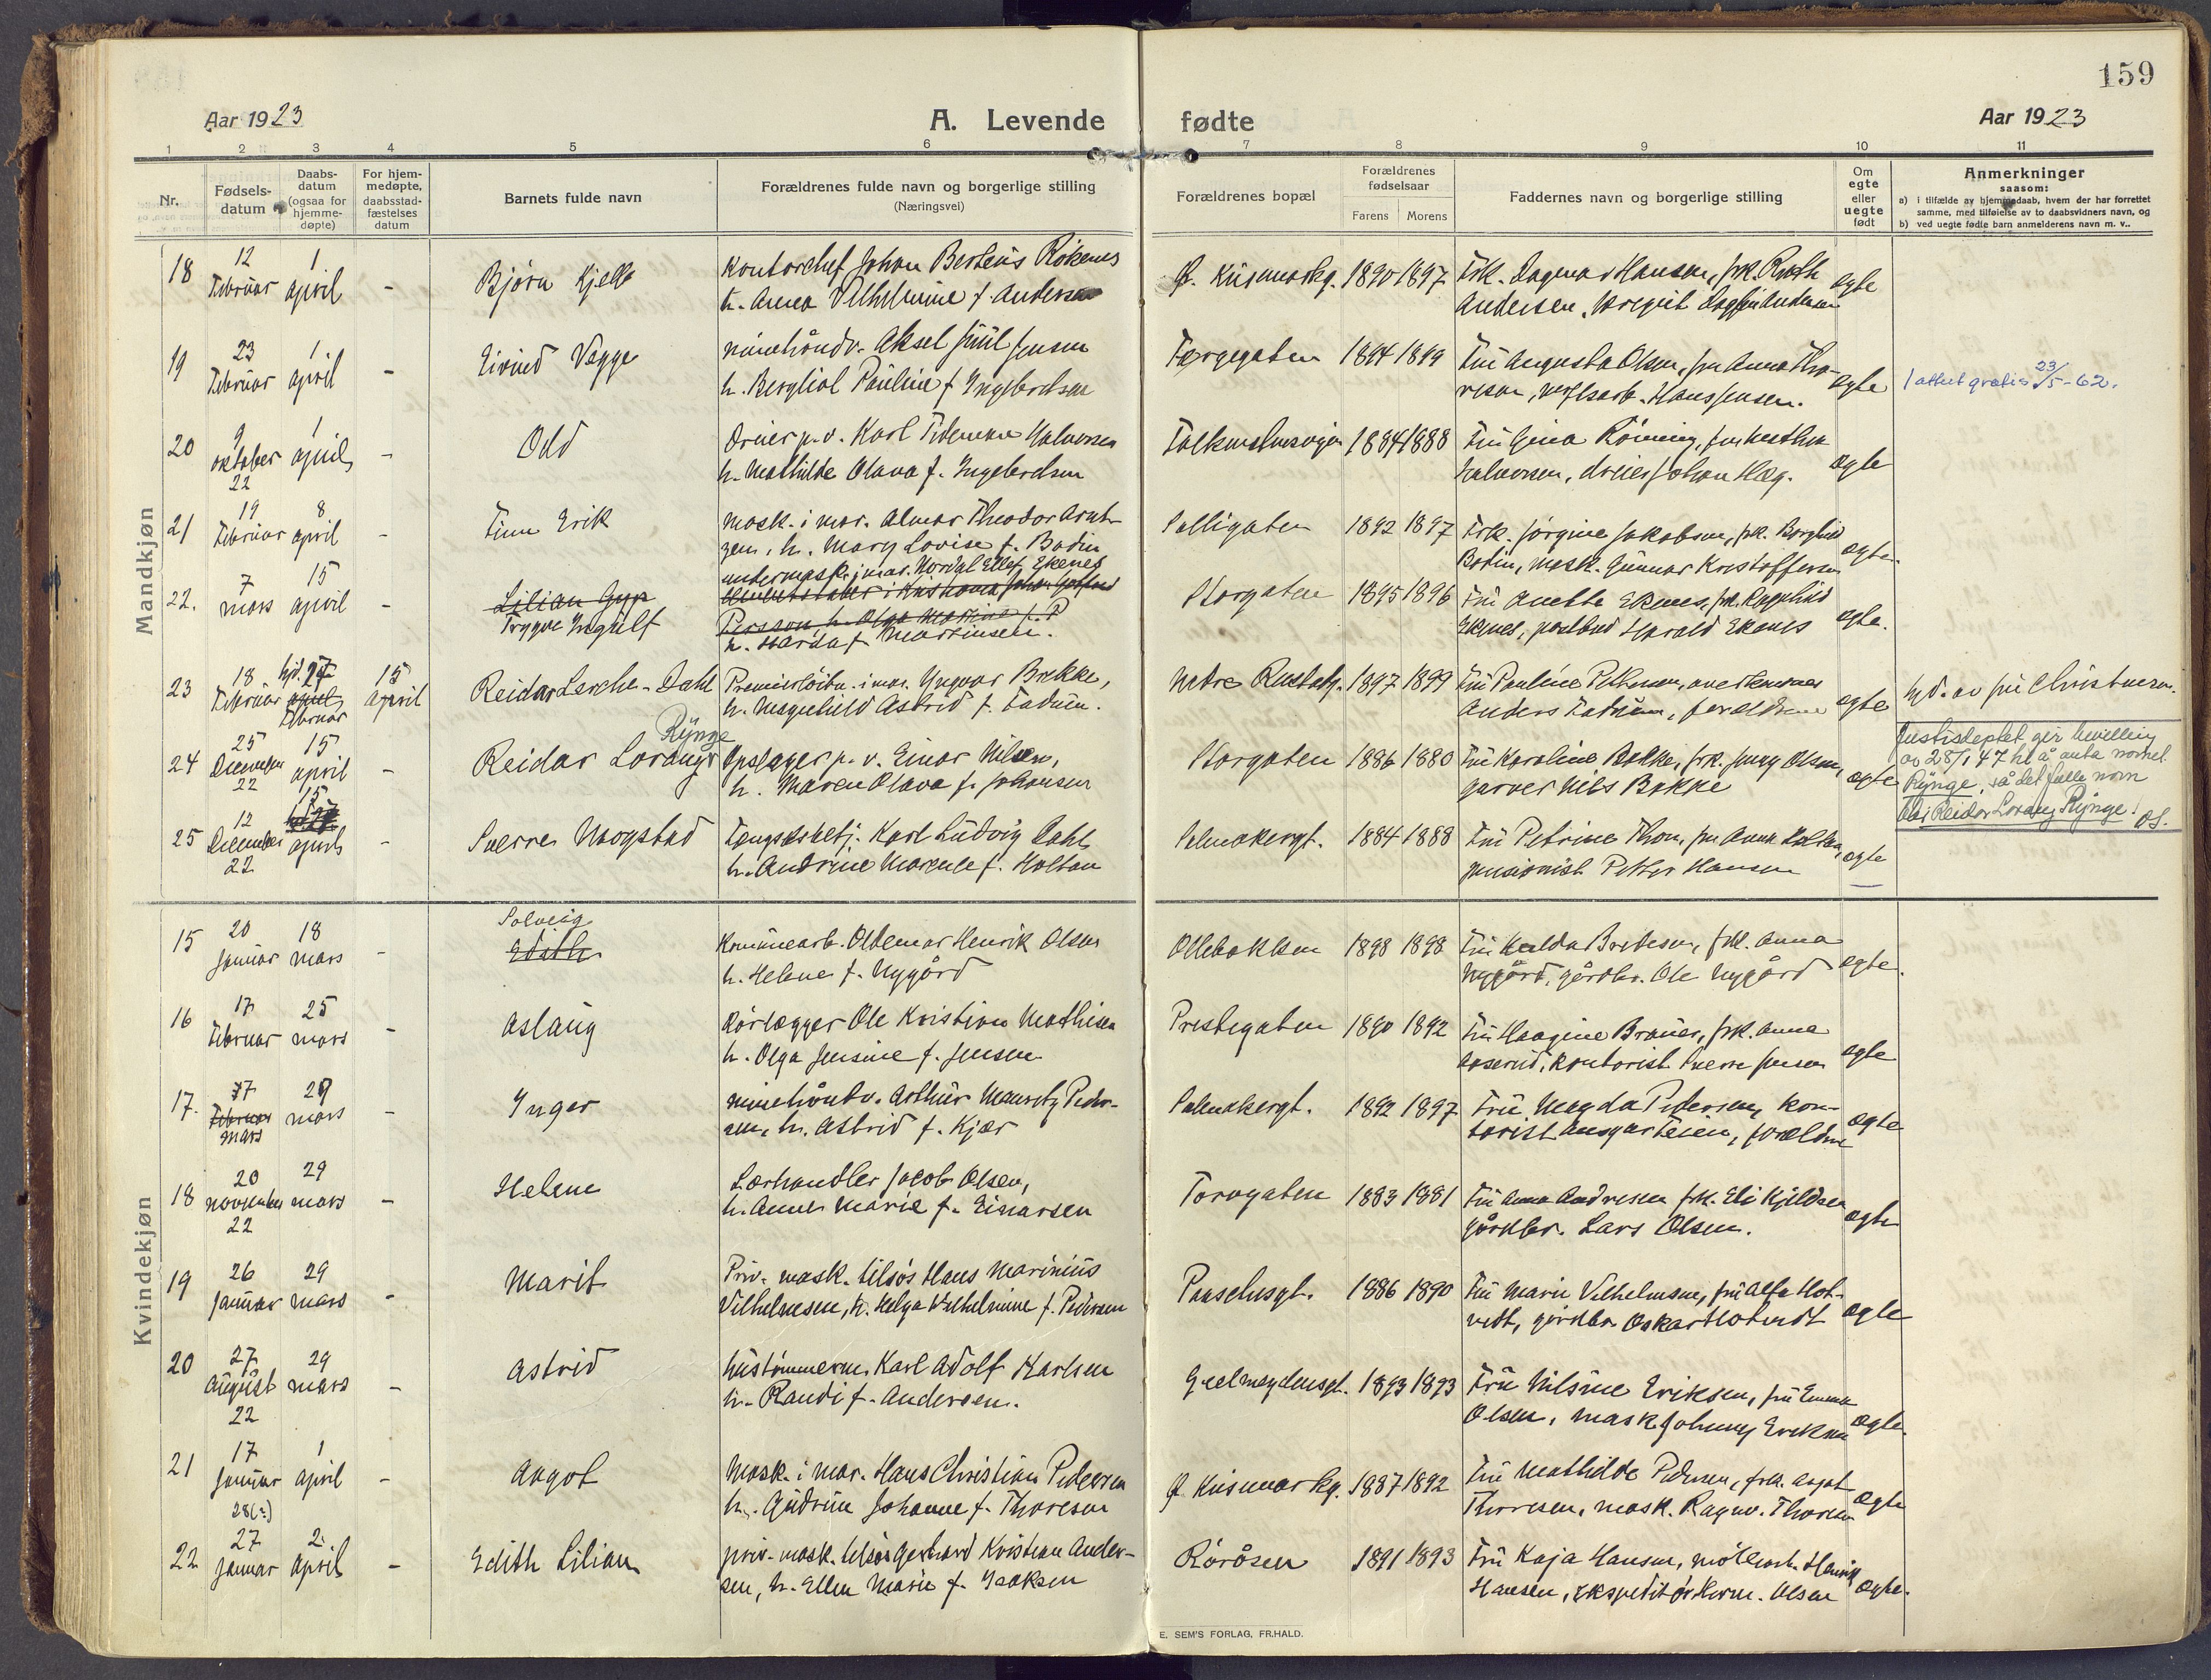 159
Aar 1923
A. Levende fødte
Aar 1923
1 2 3 4 5 6 7 8 9 10 11
Nr.
Fødsels-
datum
Daabs-
datum
(ogsaa for
hjemme-
døpte)
For hjem-
medøpte,
daabsstad-
fæstelses
datum
Barnets fulde navn
Forældrenes fulde navn og borgerlige stilling
(Næringsvei)
Forældrenes bopæl
Forældrenes
fødselsaar
Farens Morens
Faddernes navn og borgerlige stilling
Om
egte
eller
uegte
født
Anmerkninger
saasom:
a) i tilfælde av hjemmedaab, hvem der har forrettet
samme, med tilføielse av to daabsvidners navn, og
b) ved uegte fødte barn anmelderens navn m. v..
Mandkjøn
18 12 Februar 1 april - Bjørn Kjell
Kontorchef Johan Berteus Rokenes
h. Anna Vilhelmine f. Andersen
1890 1897
Frk. Dagmar Hansen, frk. Ruth
Andersen, Dagfin Andersen
egte
19 23 Februar 1 april - Eivind Vegge
minehåndv. Aksel Juul Jensen
h. Bergliot Pauline f. Ingebretsen
Færgegaten 1894 1899
Fru Augusta Olsen, fru Anna Tho-
resen, verftsarb. Hans Jensen.
egte
1 attest gratis 23/5-62.
20 9 oktober 22 1 april - Odd
Dreier p.v. Karl Tidemann Halvorsen
h. Mathilde Olava f. Ingebretsen
1884 1888
Fru Gina Rönning, fru
Halvorsen, dreier Johan Hæg.
egte
21 19 Februar 8 april - Finn Erik
Mask. i mar. Almar Theodor Arnt-
zen, h. Mary Lovise f. Bodin
1892 1897
Frk. Jörgine Jakobsen, frk. Borghild
Bodin, mask. Gunnar Kristoffersen
egte.
22. 7 mars 15 april - Lilian Gyp
Trygve Ingulf
undermask. i mar. Nordal Ellef Ekenes
Persson h. Olga Martine f. P
h. Harda f. Martinsen.
Storgaten 1895 1896
Fru Anette Ekenes, frk. Ragnhild
Ekenes, postbud Harald Ekenes
egte.
23 18 Februar hjd. 27 april Februar 15 April Reidar Lerche-Dahl
Premierløitn. i mar. Yngvar Brekke,
h. Magnhild Astrid f. Fadum.
Nedre 1897 1899
Fru Pauline Pettersen,
Anders Fadum, forældrene
egte
hjd. av fru Christensen.
24 25 December 22 15 april - Reidar Lorang Rynge
Opslager p.v. Einar Nilsen,
h. Maren Olava f. Johansen
Storgaten 1886 1880
Fru Karoline Bakke, frk. Jenny Olsen,
garver Nils Bakke
egte
Justisdeptet gir bevilling
av 28/1 47 til å anta navnet
Rynge, så det fulle navn
blir Reidar Lorang Rynge! OS.
25 12 December 22 15 april - Sverre Mogstad
Fængselsbetj. Karl Ludvig Dahl
h. Andrine Marcelie f. Holtan
Palmakergt. 1884 1888
Fru Petrine Thon, fru Anna Holtan,
pensionist Petter Hansen
egte
Kvindekjøn
15 20 Januar 18 mars - Solveig
Edith
Kommunearb. Oldemar Henrik Olsen
h. Helene f. Nygård
Ollebakken 1898 1898
Fru Hulda Bertesen, frk. Anna
Nygård, gårdbr. Ole Nygård
egte.
16 17 Februar 25 mars - Aslaug
Rörlægger Ole Kristian Mathisen
h. Olga Jensine f. Jensen
Prestegaten 1890 1892
Fru Haagine Brauer, frk. Anna
Aaserud, kontorist Sverre Jensen
egte
17. 17 Februar mars 29 mars - Inger
minehåndv. Arthur Mauritz Peder-
sen, h. Astrid f. Kjær
Palmakergt. 1892 1897
Fru Magda Pedersen, kon-
torist Ansgar Teien, forældrene
egte
18 20 november 22 29 mars - Helene
Lærhandler Jacob Olsen,
h. Anna Marie f. Einarsen
Torvgaten 1883 1881
Fru Anna Andresen frk. Eli Kjeldsen
gårdbr. Lars Olsen.
egte
19 26 Januar 29 mars - Marit
Priv. mask. tilsös Hans Marinius
Vilhelmsen, h. Helga Wilhelmine f. Pedersen
1886 1890
Fru Marie Vilhelmsen, fru Alfa Hot-
vedt, gårdbr. Oskar Hotvedt
egte
20 27 August 22 29 mars - Astrid
hustömmerm. Karl Adolf Karlsen
h. Randi f. Andersen.
Gjelmeydensgt. 1893 1893
Fru Nilsine Eriksen, fru Emma
Olsen, mask. Johnny Eriksen
egte.
21 17 Januar 28(?) 1 april - Aagot
Mask. i mar. Hans Christian Pedersen
h. Gudrun Johanne f. Thoresen
1887 1892
Fru Mathilde Pedersen, frk. Aagot
Thoresen, mask. Ragnv. Thoresen
egte
22 27 Januar 2. April - Edith Lilian
priv. mask. tilsös Gerhard Kristian Ander-
sen, h. Ellen Marie f. Isaksen
Röråsen 1891 1893
Fru Kaja Hansen, möllearb. Henrik
Hansen, ekspeditör Herm. Olsen
egte.
E. SEM'S FORLAG, FR.HALD.